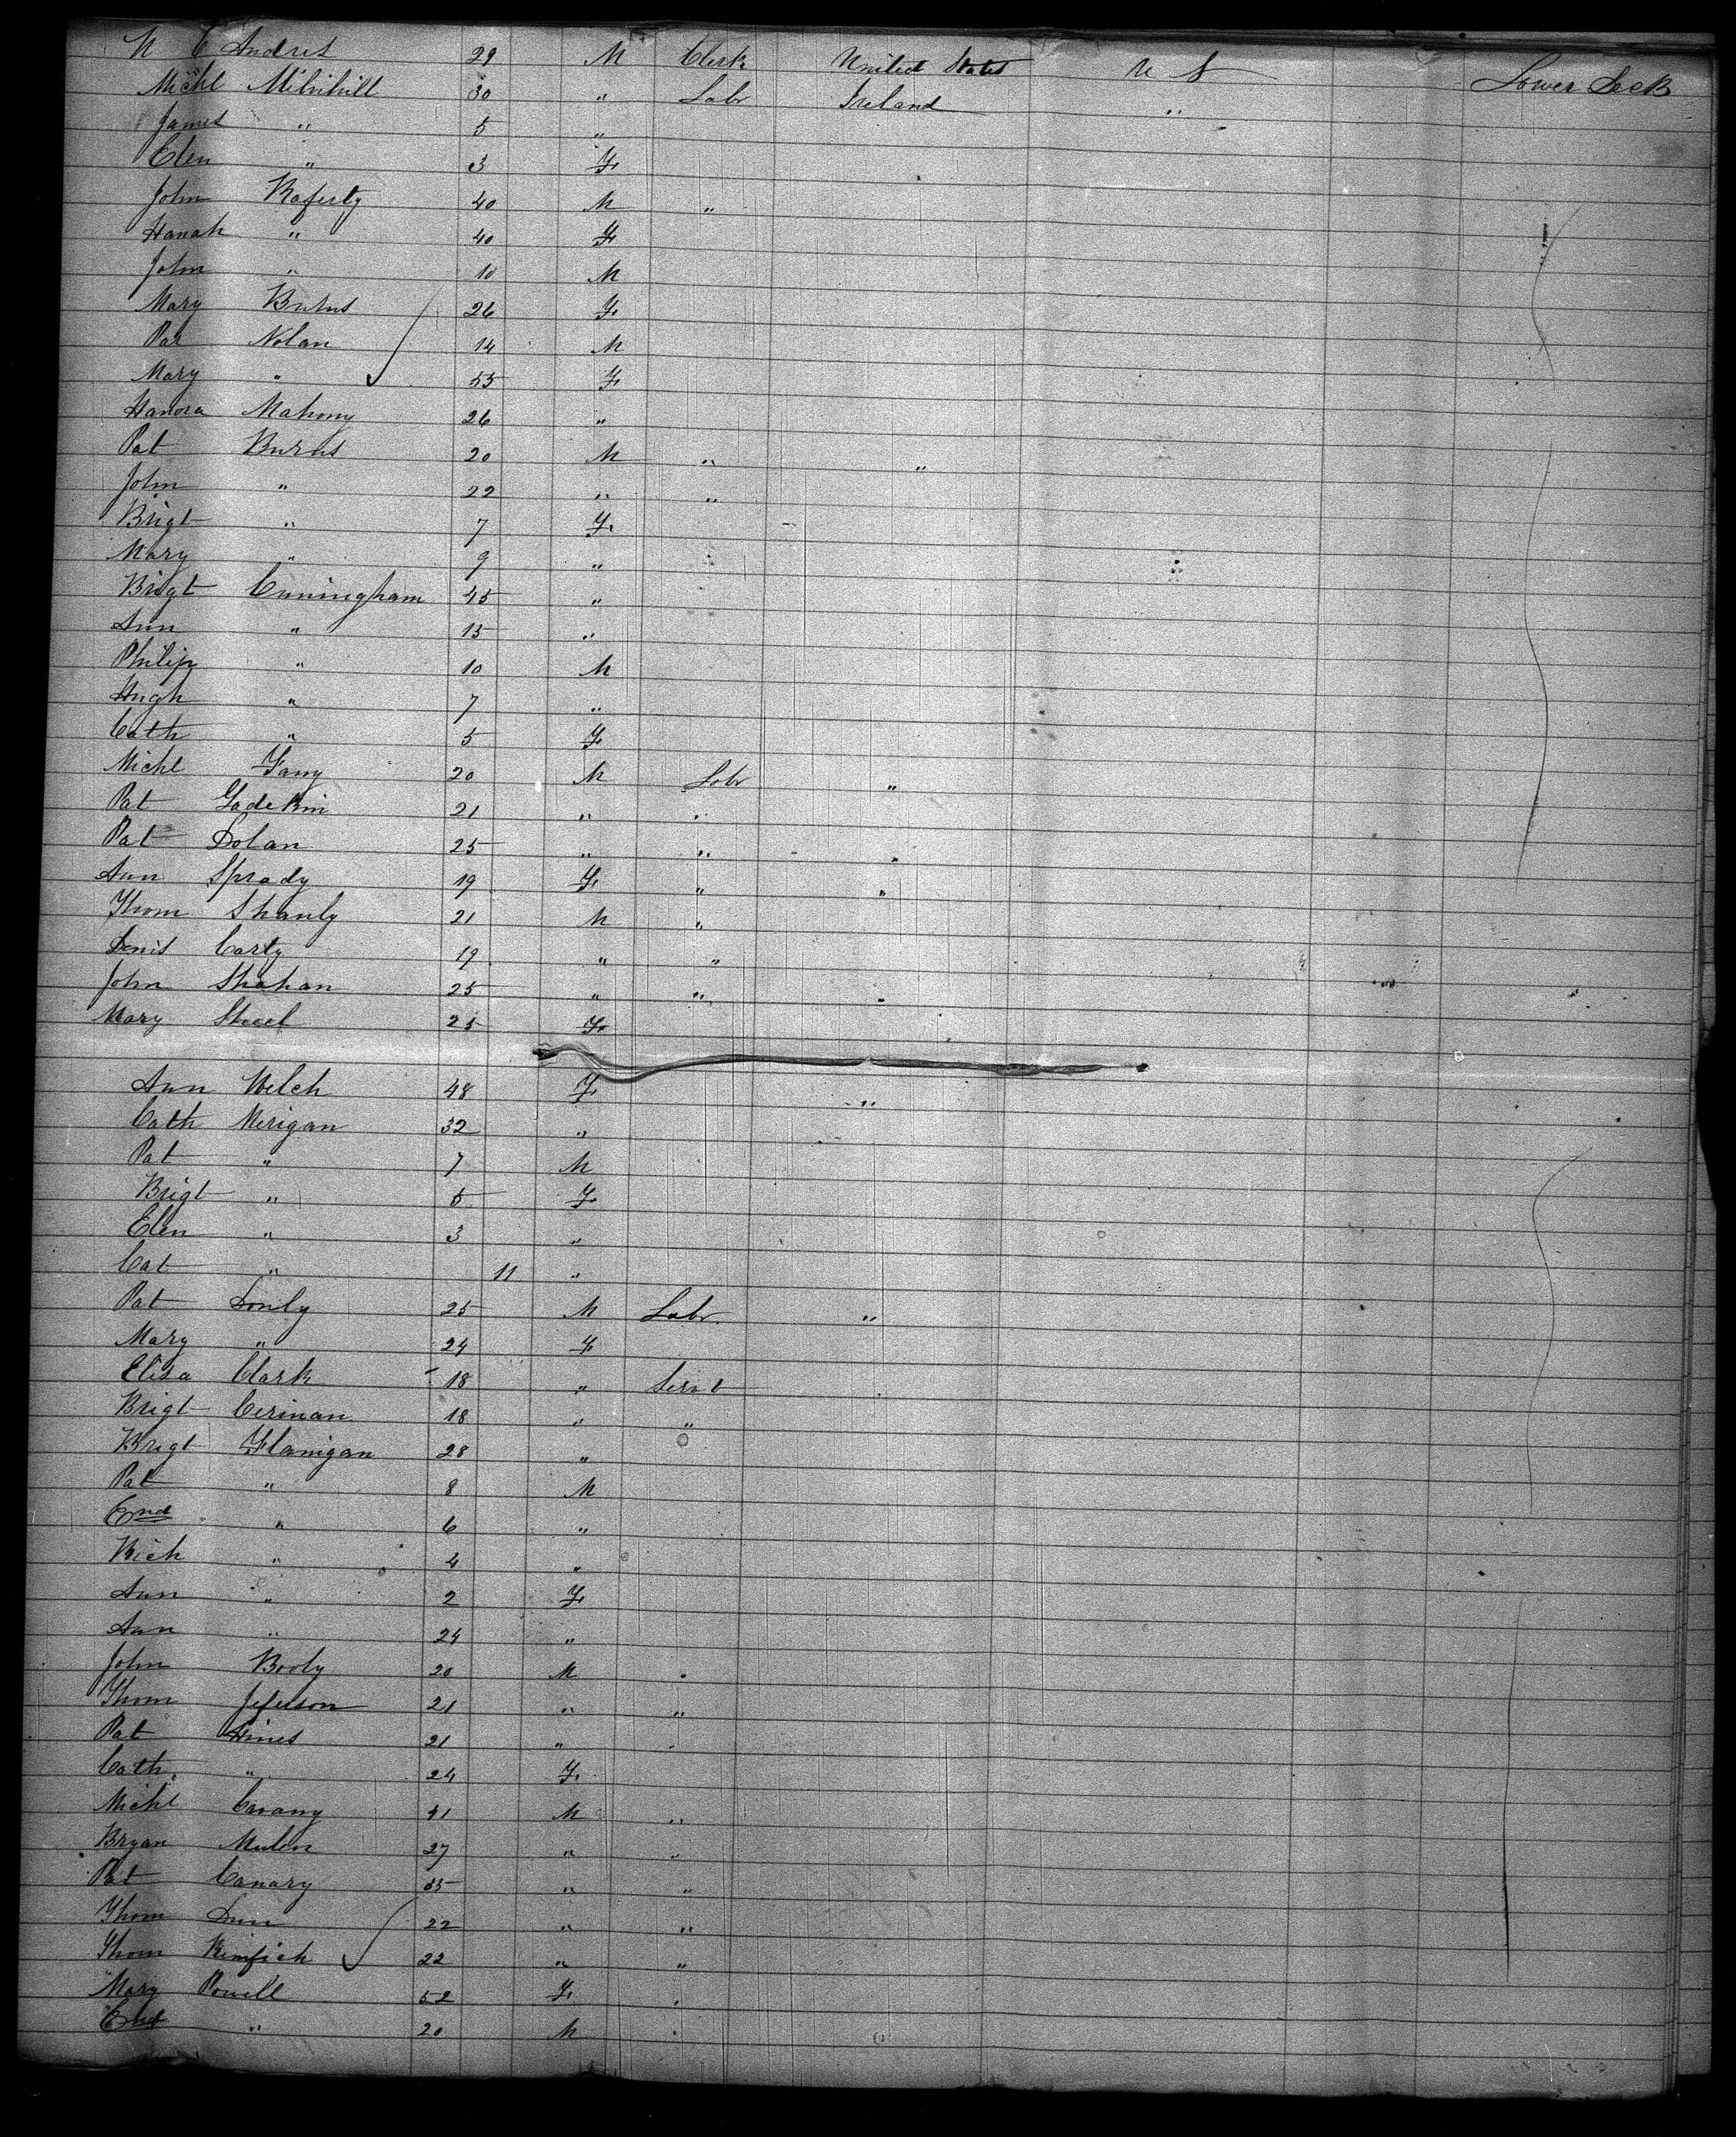 C Andres 29 M Clerk United States U S Lower Deck
Michl 30 " Labr Ireland "
James " 5 "
Elen " 3 F
John Raferty 40 M "
Hanah " 40 F
John " 10 M
Mary Burns 26 F
Pat Nolan 14 M
Mary " 55 F
Hanora Mahony 26 "
Pat Burns 20 M " "
John " 22 " "
Brigt " 7 F
Mary " 9 "
Brigt Cuningham 45 "
Ann " 13 "
Philip " 10 M
Hugh " 7 "
Cath " 5 F
Michl Fany 20 M Labr "
Pat 21 " "
Pat Dolan 25 " " "
Ann Sprady 19 F " "
Thom Shanly 21 M "
Denis Carty 19 " "
John Shahan 25 " " "
Mary 25 F
Ann Welch 48 F "
Cath Merigan 32 "
Pat " 7 M
Brigt " 5 F
Elen " 3 "
Cat " 11 "
Pat Donly 25 M Labr "
Mary " 24 F
Elisa Clark 18 " Servt
Brigt Cerinan 18 " "
Brigt Flanigan 28 "
Pat " 8 M
End " 6 "
Rich " 4 "
Ann " 2 F
Ann " 24 "
John Booly 20 M "
Thom Jeferson 21 " "
Pat Hines 21 " "
Cath " 24 F
Michl 41 M "
Bryan Mulen 27 " "
Pat Canary 35 " "
Thom Dun 22 " "
Thom 22 " "
Mary Powell 52 F "
" 20 M "